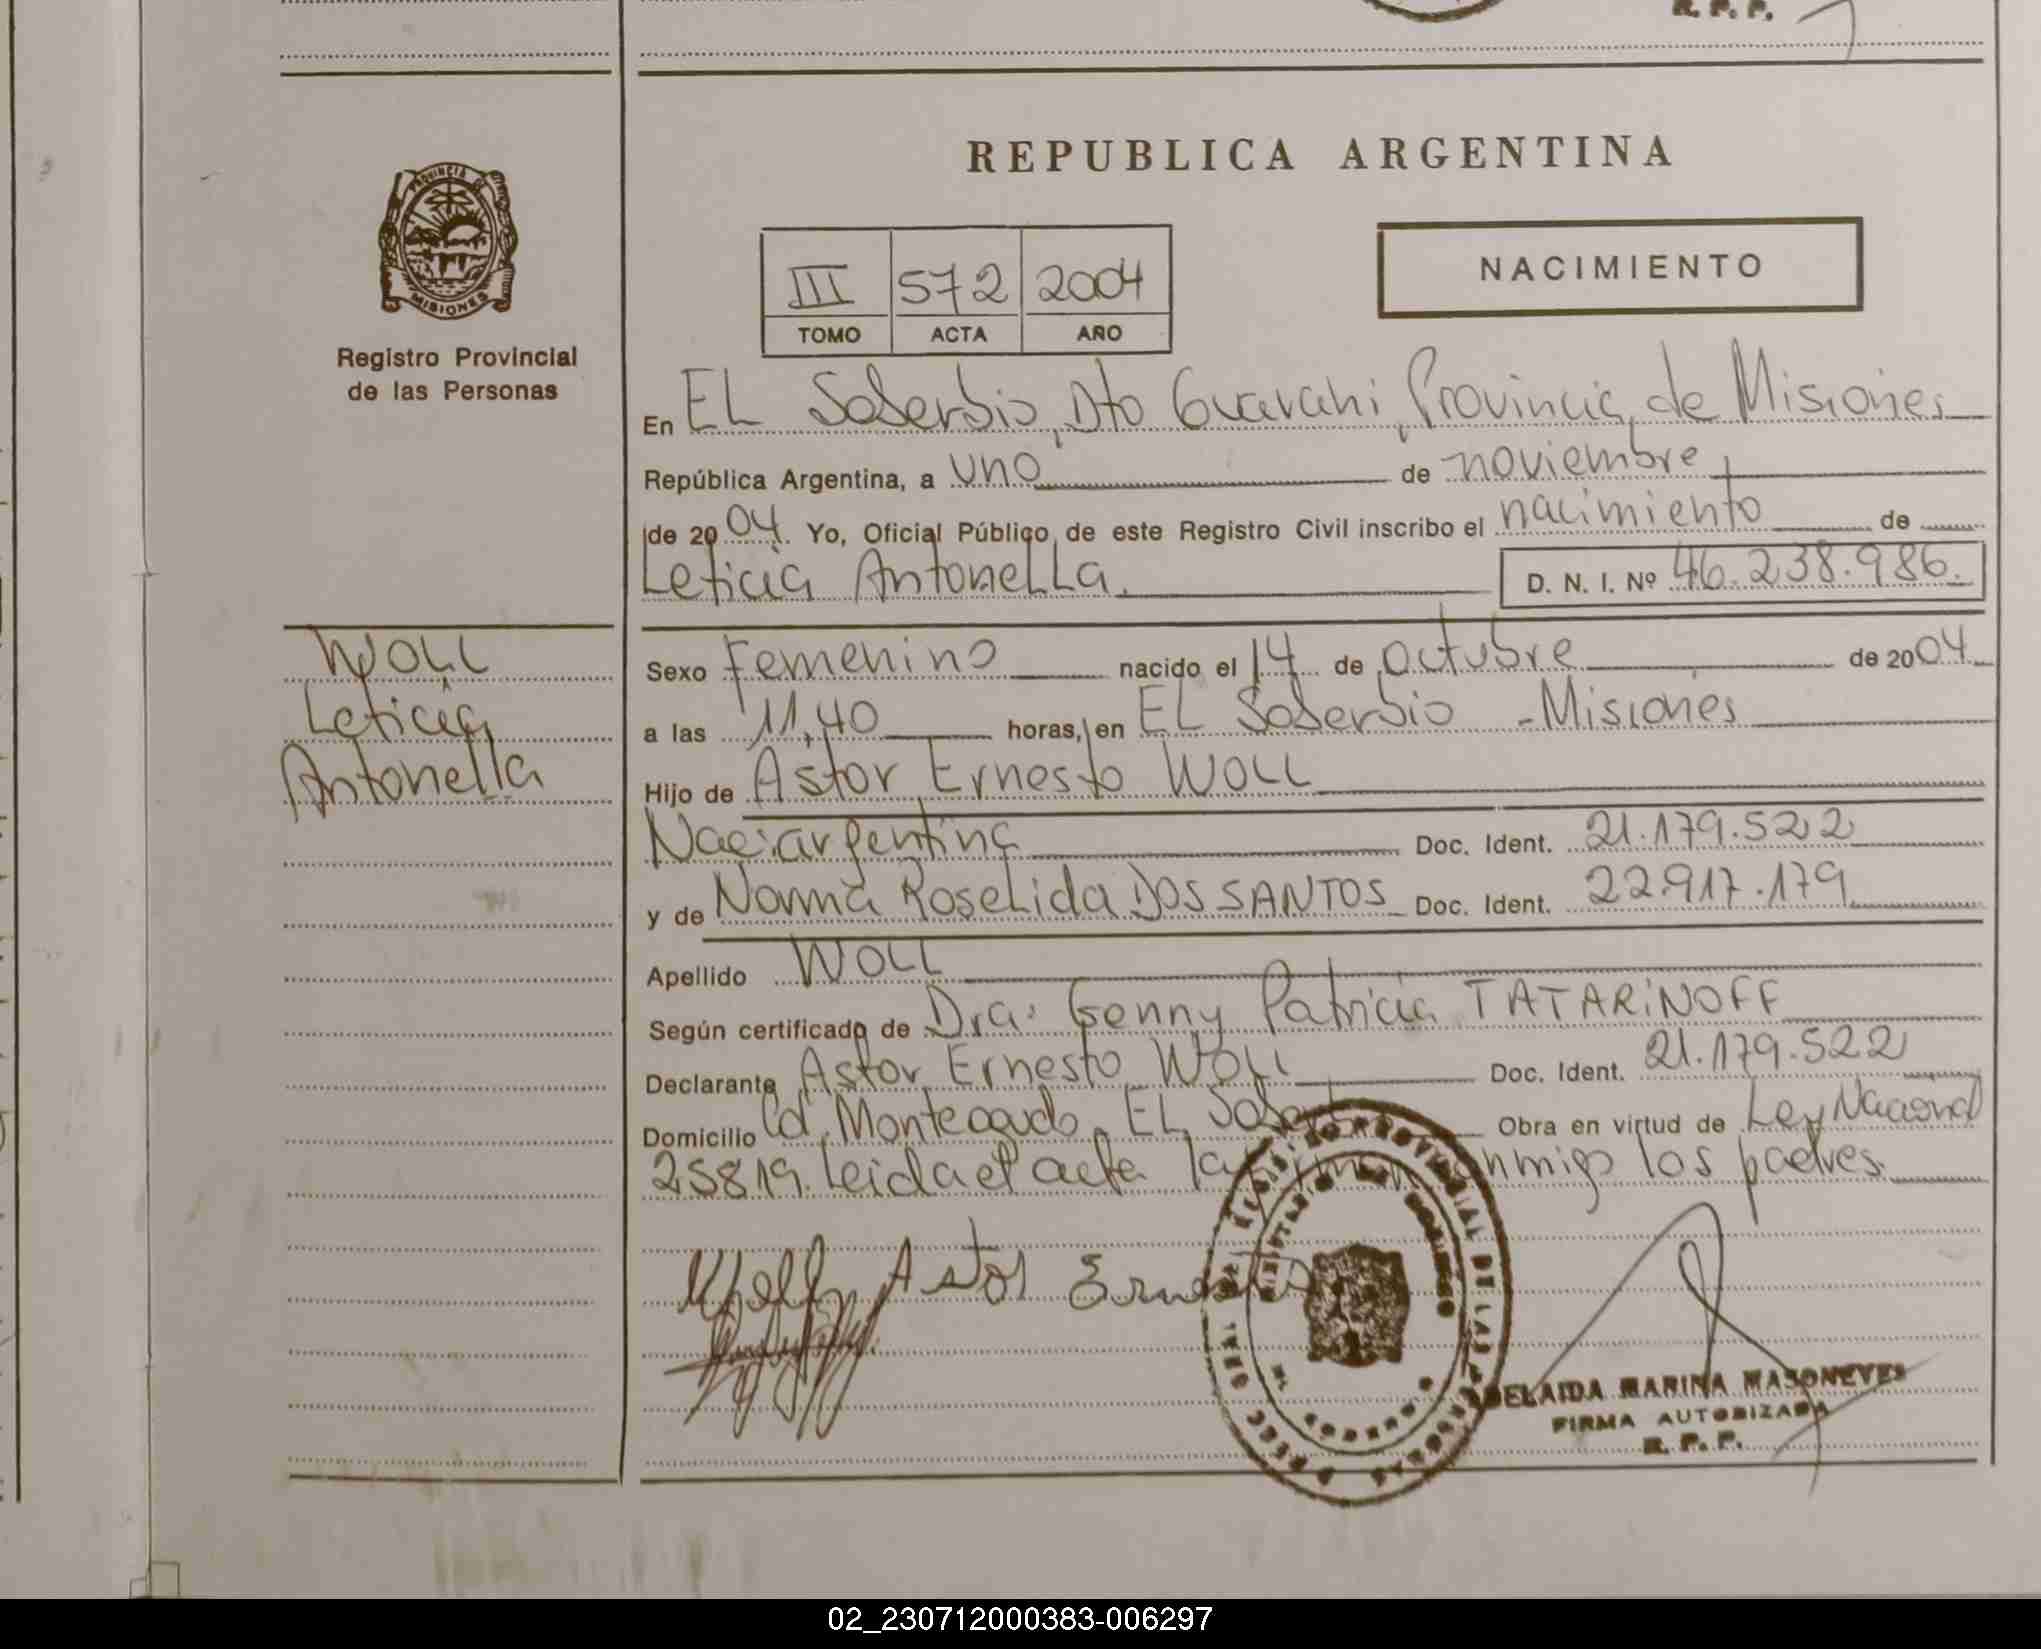 R. P. P.
PROVINCIA DE
MISIONES
Registro Provincial
de las Personas
REPUBLICA ARGENTINA
NACIMIENTO
III 572 2004
TOMO ACTA AÑO
En EL Soberbio, Dto Guarani, Provincia de Misiones
República Argentina, a uno de noviembre
de 2004. Yo, Oficial Público de este Registro Civil inscribo el nacimiento de
Leticia Antonella. D. N. I. Nº 46.238.986.
WOLL
Leticia
Antonella
Sexo Femenino nacido el 14 de octubre de 2004
a las 11,40 horas, en EL Soberbio - Misiones
Hijo de Astor Ernesto WOLL
Nac: argentina Doc. Ident. 21.179.522
y de Norma Roselida DOS SANTOS Doc. Ident. 22.917.179
Apellido WOLL
Según certificado de Dra: Genny Patricia TATARINOFF
Declarante Astor Ernesto WOLL Doc. Ident. 21.179.522
Domicilio Cd. Monteagudo, EL Obra en virtud de Ley Nacional
25819. Leida el acta los padres.
Astor
ADELAIDA MARINA MASONEVES
FIRMA AUTORIZADA
R. P. P.
02_230712000383-006297